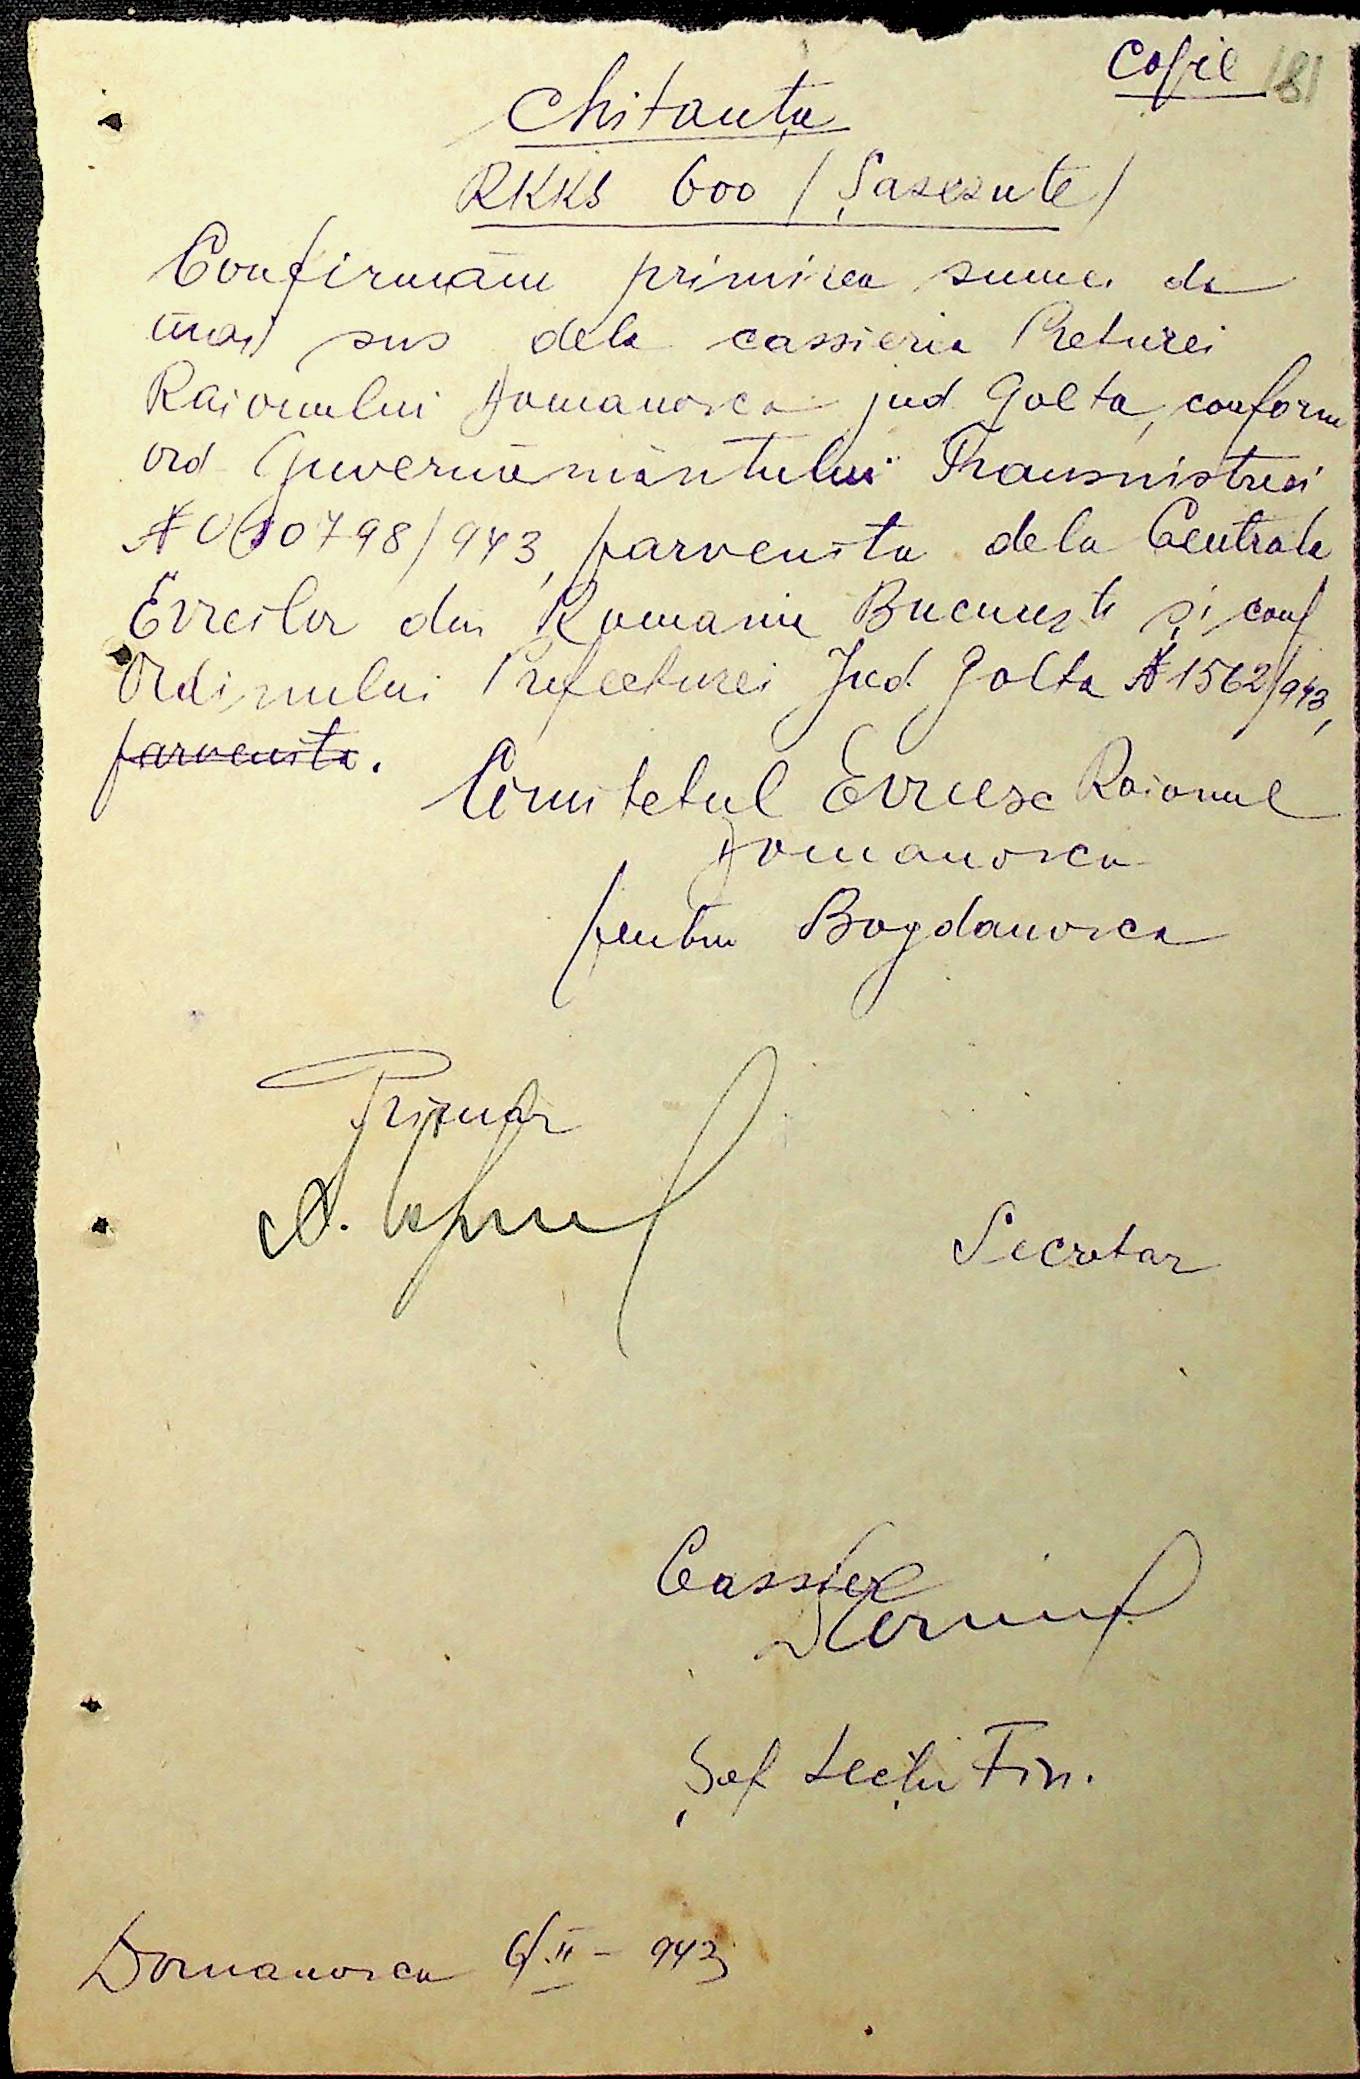 Copie 181
Chitanța
RKKS 600 / Șasesute /
Confirmăm primirea sumei de
mai sus dela cassieria Preturei
Raionului Domanovca jud Golta, conform
ord Guvernământului Transnistriei
№ 010798/943, parvenita dela Centrala
Evreilor din Romania Bucuresti și conf
Ordinului Prefecturei Jud Golta № 1562/943,
parvenita.
Comitetul Evreesc Raionul
Domanovca
pentru Bogdanovca
Primar
Secretar
Cassier
Șef Secției Fin.
Domanovca 6/II - 943